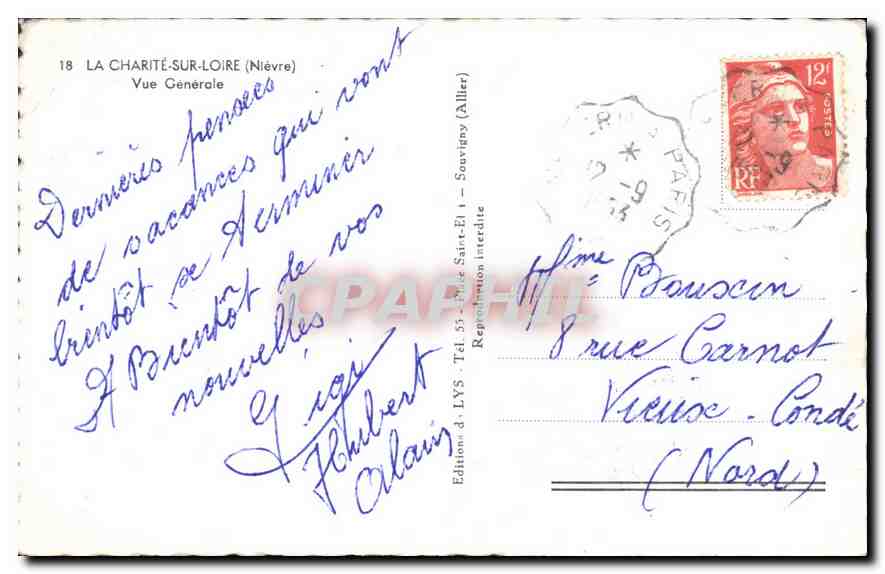 18 LA CHARITÉ-SUR-LOIRE (Nièvre)
Vue Générale
Dernières pensées
de vacances qui vont
bientôt se terminer
A Bientôt de vos
nouvelles
Gigi
Hubert
Alain
Editions d. LYS - Tél. 55 - Place Saint-El i - Souvigny (Allier)
Reproduction interdite
CPAPHIL
12f
POSTES
RF
PARIS
-9
Mme Bouscin
8 rue Carnot
Vieux-Condé
(Nord)